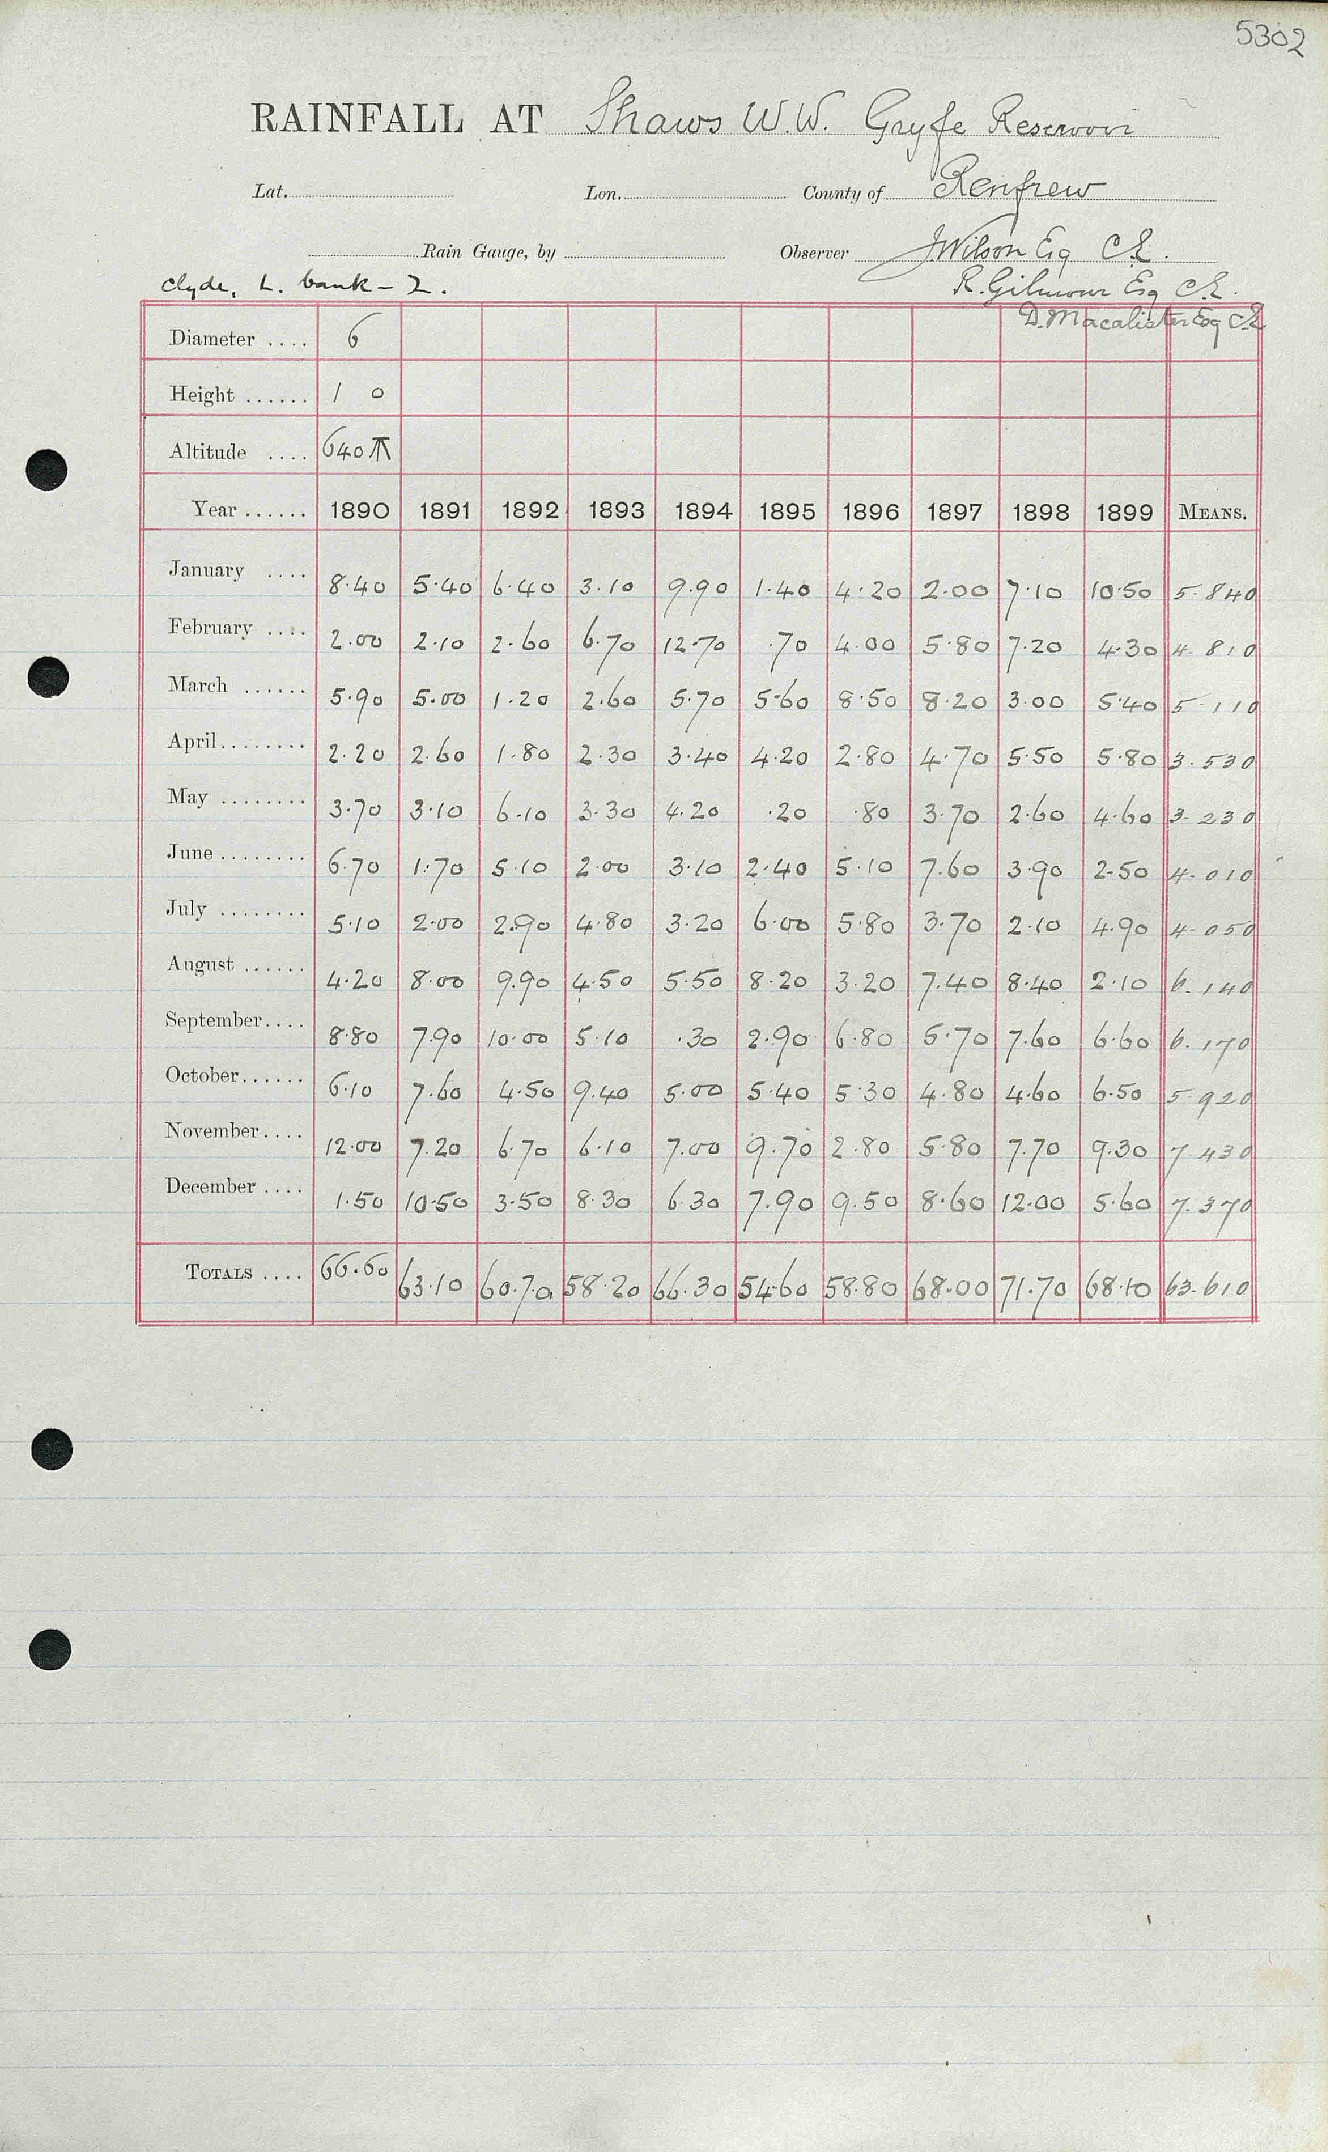 5302
RAINFALL AT Shaws W.W. Gryfe Reservoir
Lat. Lon. County of Renfrew
Rain Gauge, by Observer J Wilson Esq C.E.
Clyde, L. bank - 2. R. Gilmour Esq C.E.
D. Macalister Esq C.E
Diameter .... 6
Height ...... 1 0
Altitude .... 640
Year ...... 1890 1891 1892 1893 1894 1895 1896 1897 1898 1899 MEANS.
January .... 8.40 5.40 6.40 3.10 9.90 1.40 4.20 2.00 7.10 10.50 5.840
February .... 2.00 2.10 2.60 6.70 12.70 .70 4.00 5.80 7.20 4.30 4.810
March ...... 5.90 5.00 1.20 2.60 5.70 5.60 8.50 8.20 3.00 5.40 5.110
April........ 2.20 2.60 1.80 2.30 3.40 4.20 2.80 4.70 5.50 5.80 3.530
May ........ 3.70 3.10 6.10 3.30 4.20 .20 .80 3.70 2.60 4.60 3.230
June ........ 6.70 1.70 5.10 2.00 3.10 2.40 5.10 7.60 3.90 2.50 4.010
July ........ 5.10 2.00 2.90 4.80 3.20 6.00 5.80 3.70 2.10 4.90 4.050
August ...... 4.20 8.00 9.90 4.50 5.50 8.20 3.20 7.40 8.40 2.10 6.140
September.... 8.80 7.90 10.00 5.10 .30 2.90 6.80 5.70 7.60 6.60 6.170
October...... 6.10 7.60 4.50 9.40 5.00 5.40 5.30 4.80 4.60 6.50 5.920
November.... 12.00 7.20 6.70 6.10 7.00 9.70 2.80 5.80 7.70 9.30 7.430
December .... 1.50 10.50 3.50 8.30 6.30 7.90 9.50 8.60 12.00 5.60 7.370
TOTALS .... 66.60 63.10 60.70 58.20 66.30 54.60 58.80 68.00 71.70 68.10 63.610